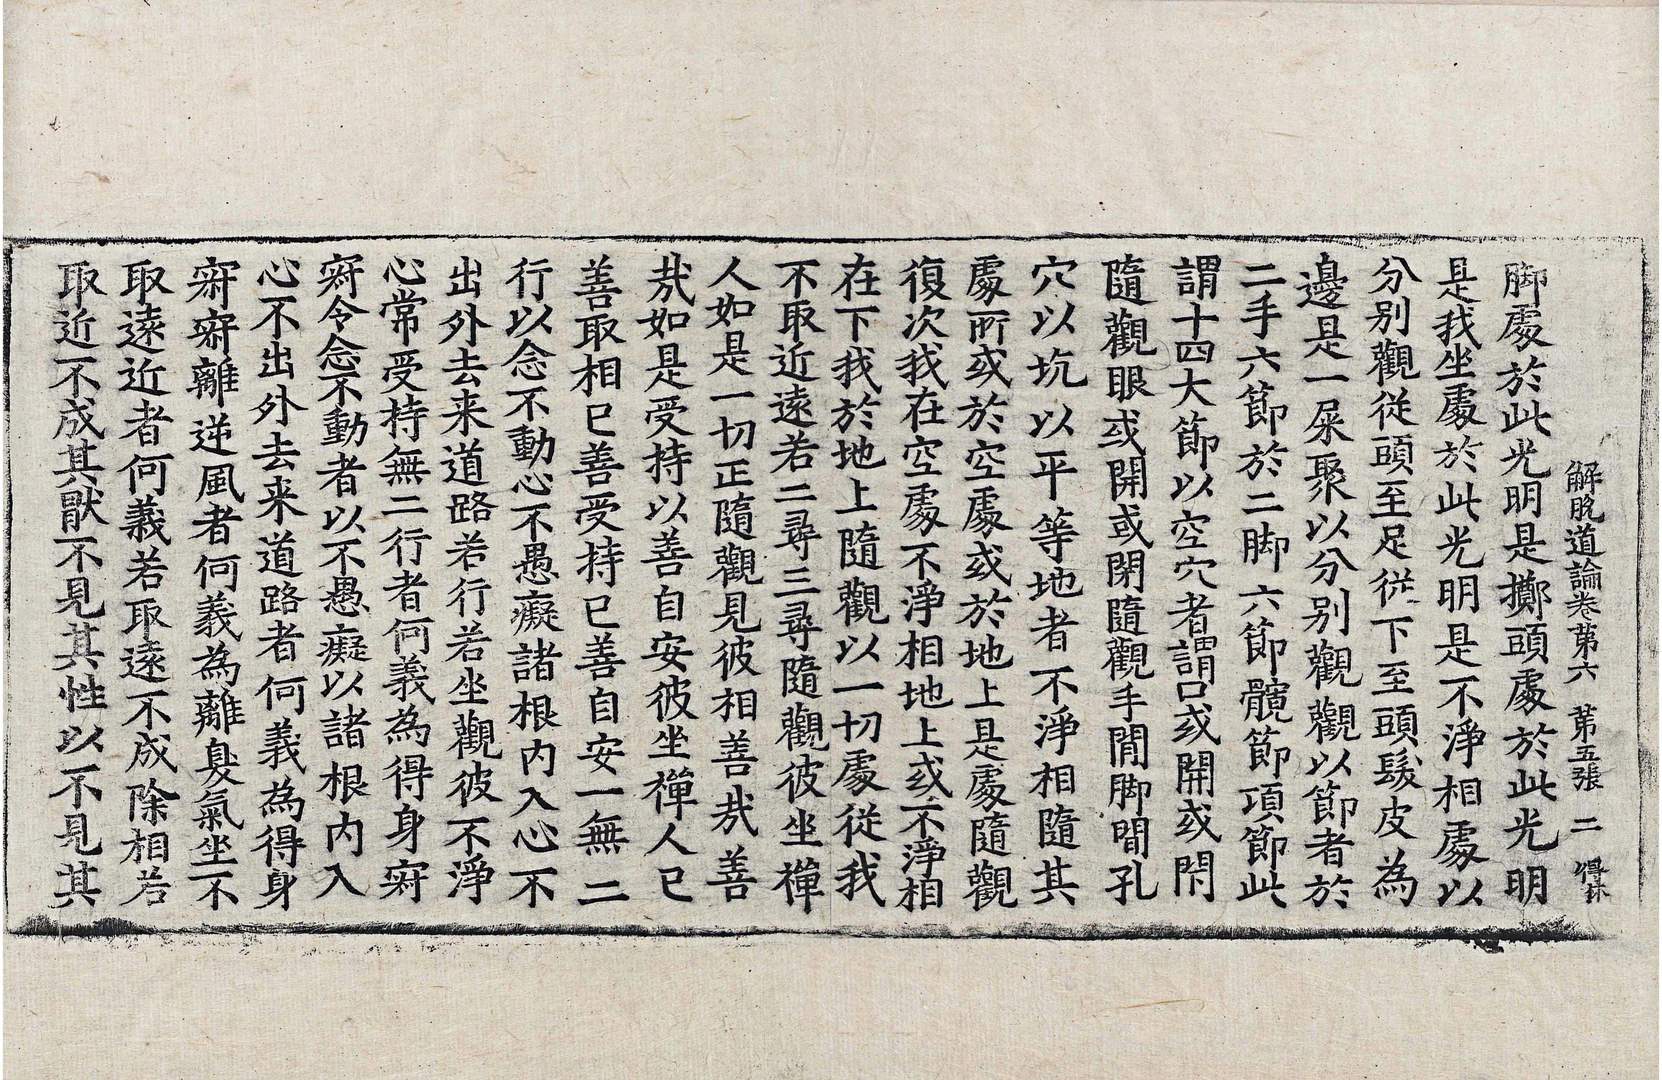 解脫道論卷第六　第五張　二　得林
脚處於此光明是擲頭處於此光明
是我坐處於此光明是不淨相處以
分別觀從頭至足從下至頭髮皮為
邊是一屎聚以分別觀觀以節者於
二手六節於二脚六節髖節項節此
謂十四大節以空穴者謂口或開或閇
隨觀眼或開或閇隨觀手間脚間孔
穴以坑以平等地者不淨相隨其
處所或於空處或於地上是處隨觀
復次我在空處不淨相地上或不淨相
在下我於地上隨觀以一切處從我
不取近遠若二尋三尋隨觀彼坐禪
人如是一切正隨觀見彼相善㢤善
㢤如是受持以善自安彼坐禪人已
善取相已善受持已善自安一無二
行以念不動心不愚癡諸根內入心不
出外去来道路若行若坐觀彼不淨
心常受持無二行者何義為得身寂
寂令念不動者以不愚癡以諸根內入
心不出外去来道路者何義為得身
寂寂離逆風者何義為離臭氣坐不
取遠近者何義若取遠不成除相若
取近不成其猒不見其性以不見其